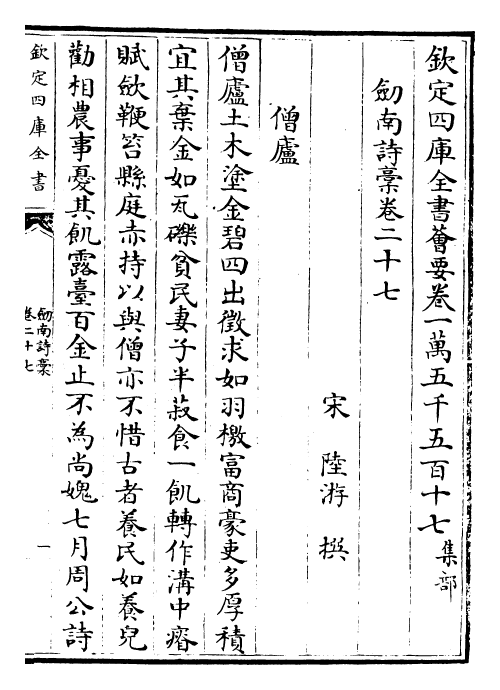 欽定四庫全書薈要卷一萬五千五百十七集部
劒南詩稾卷二十七
宋陸游撰
僧廬
僧廬土木塗金碧四出徵求如羽檄富商豪吏多厚積
宜其棄金如瓦礫貧民妻子半菽食一飢轉作溝中瘠
賦斂鞭笞縣庭赤持以與僧亦不惜古者養民如養兒
勸相農事憂其飢露臺百金止不為尚媿七月周公詩
欽定四庫全書
劒南詩稾
卷二十七
一